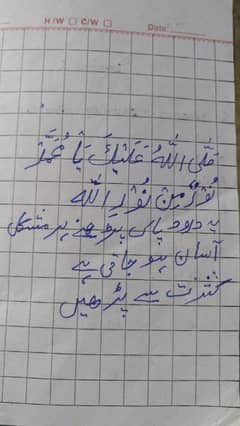 H/W C/W Date:
صَلَّى اللّٰهُ عَلَيْكَ يَا مُحَمَّدُ
نُوْرٌ مِّنْ نُوْرِ اللّٰه
یہ درود پاک پڑھنے پر مشکل
آسان ہو جاتی ہے
کثرت سے پڑھیں